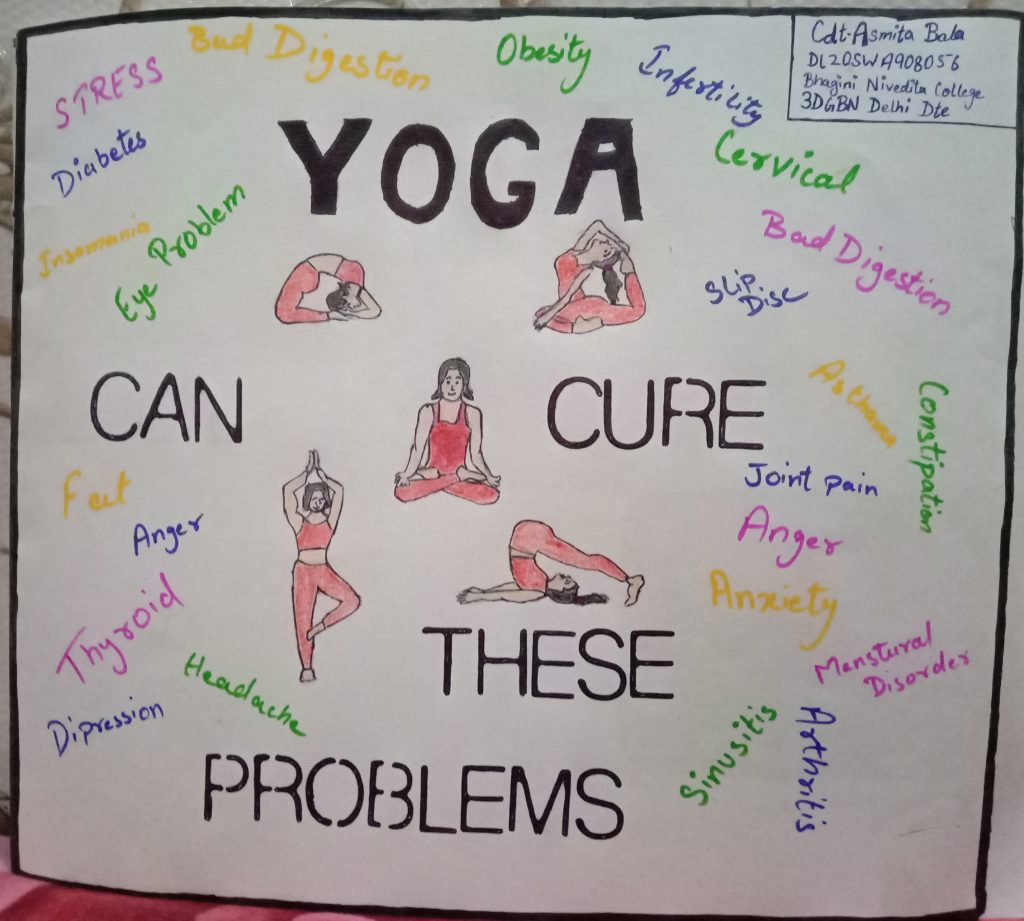 Cdt-Asmita Bala
DL20SWA908056
Bhagini Nivedita College
3DGBN Delhi Dte
STRESS
Bad Digestion
Obesity
Infertility
Diabetes
YOGA
Cervical
Insomania
Eye Problem
Bad Digestion
Slip
Disc
CAN
CURE
Asthama
Constipation
Fat
Joint pain
Anger
Anger
Anxiety
Thyroid
THESE
Menstural
Disorder
Headache
Dipression
Sinusitis
Arthritis
PROBLEMS